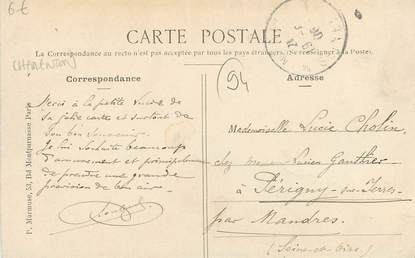 6€
CARTE POSTALE
La Correspondance au recto n'est pas acceptée par tous les pays étrangers. (Se renseigner à la Poste)
Correspondance
Adresse
94
P. Marmuse, 53, Bd Montparnasse Paris
Merci à la petite Lucie de
sa jolie carte et surtout de
son bon souvenir.
Je lui souhaite beaucoup
d'amusement et principalement
de prendre une grande
provision de bon air.
Mademoiselle Lucie Cholin,
chez Lucien Gauthier
à Périgny-sur-Yerres
par Mandres.
(Seine-et-Oise)